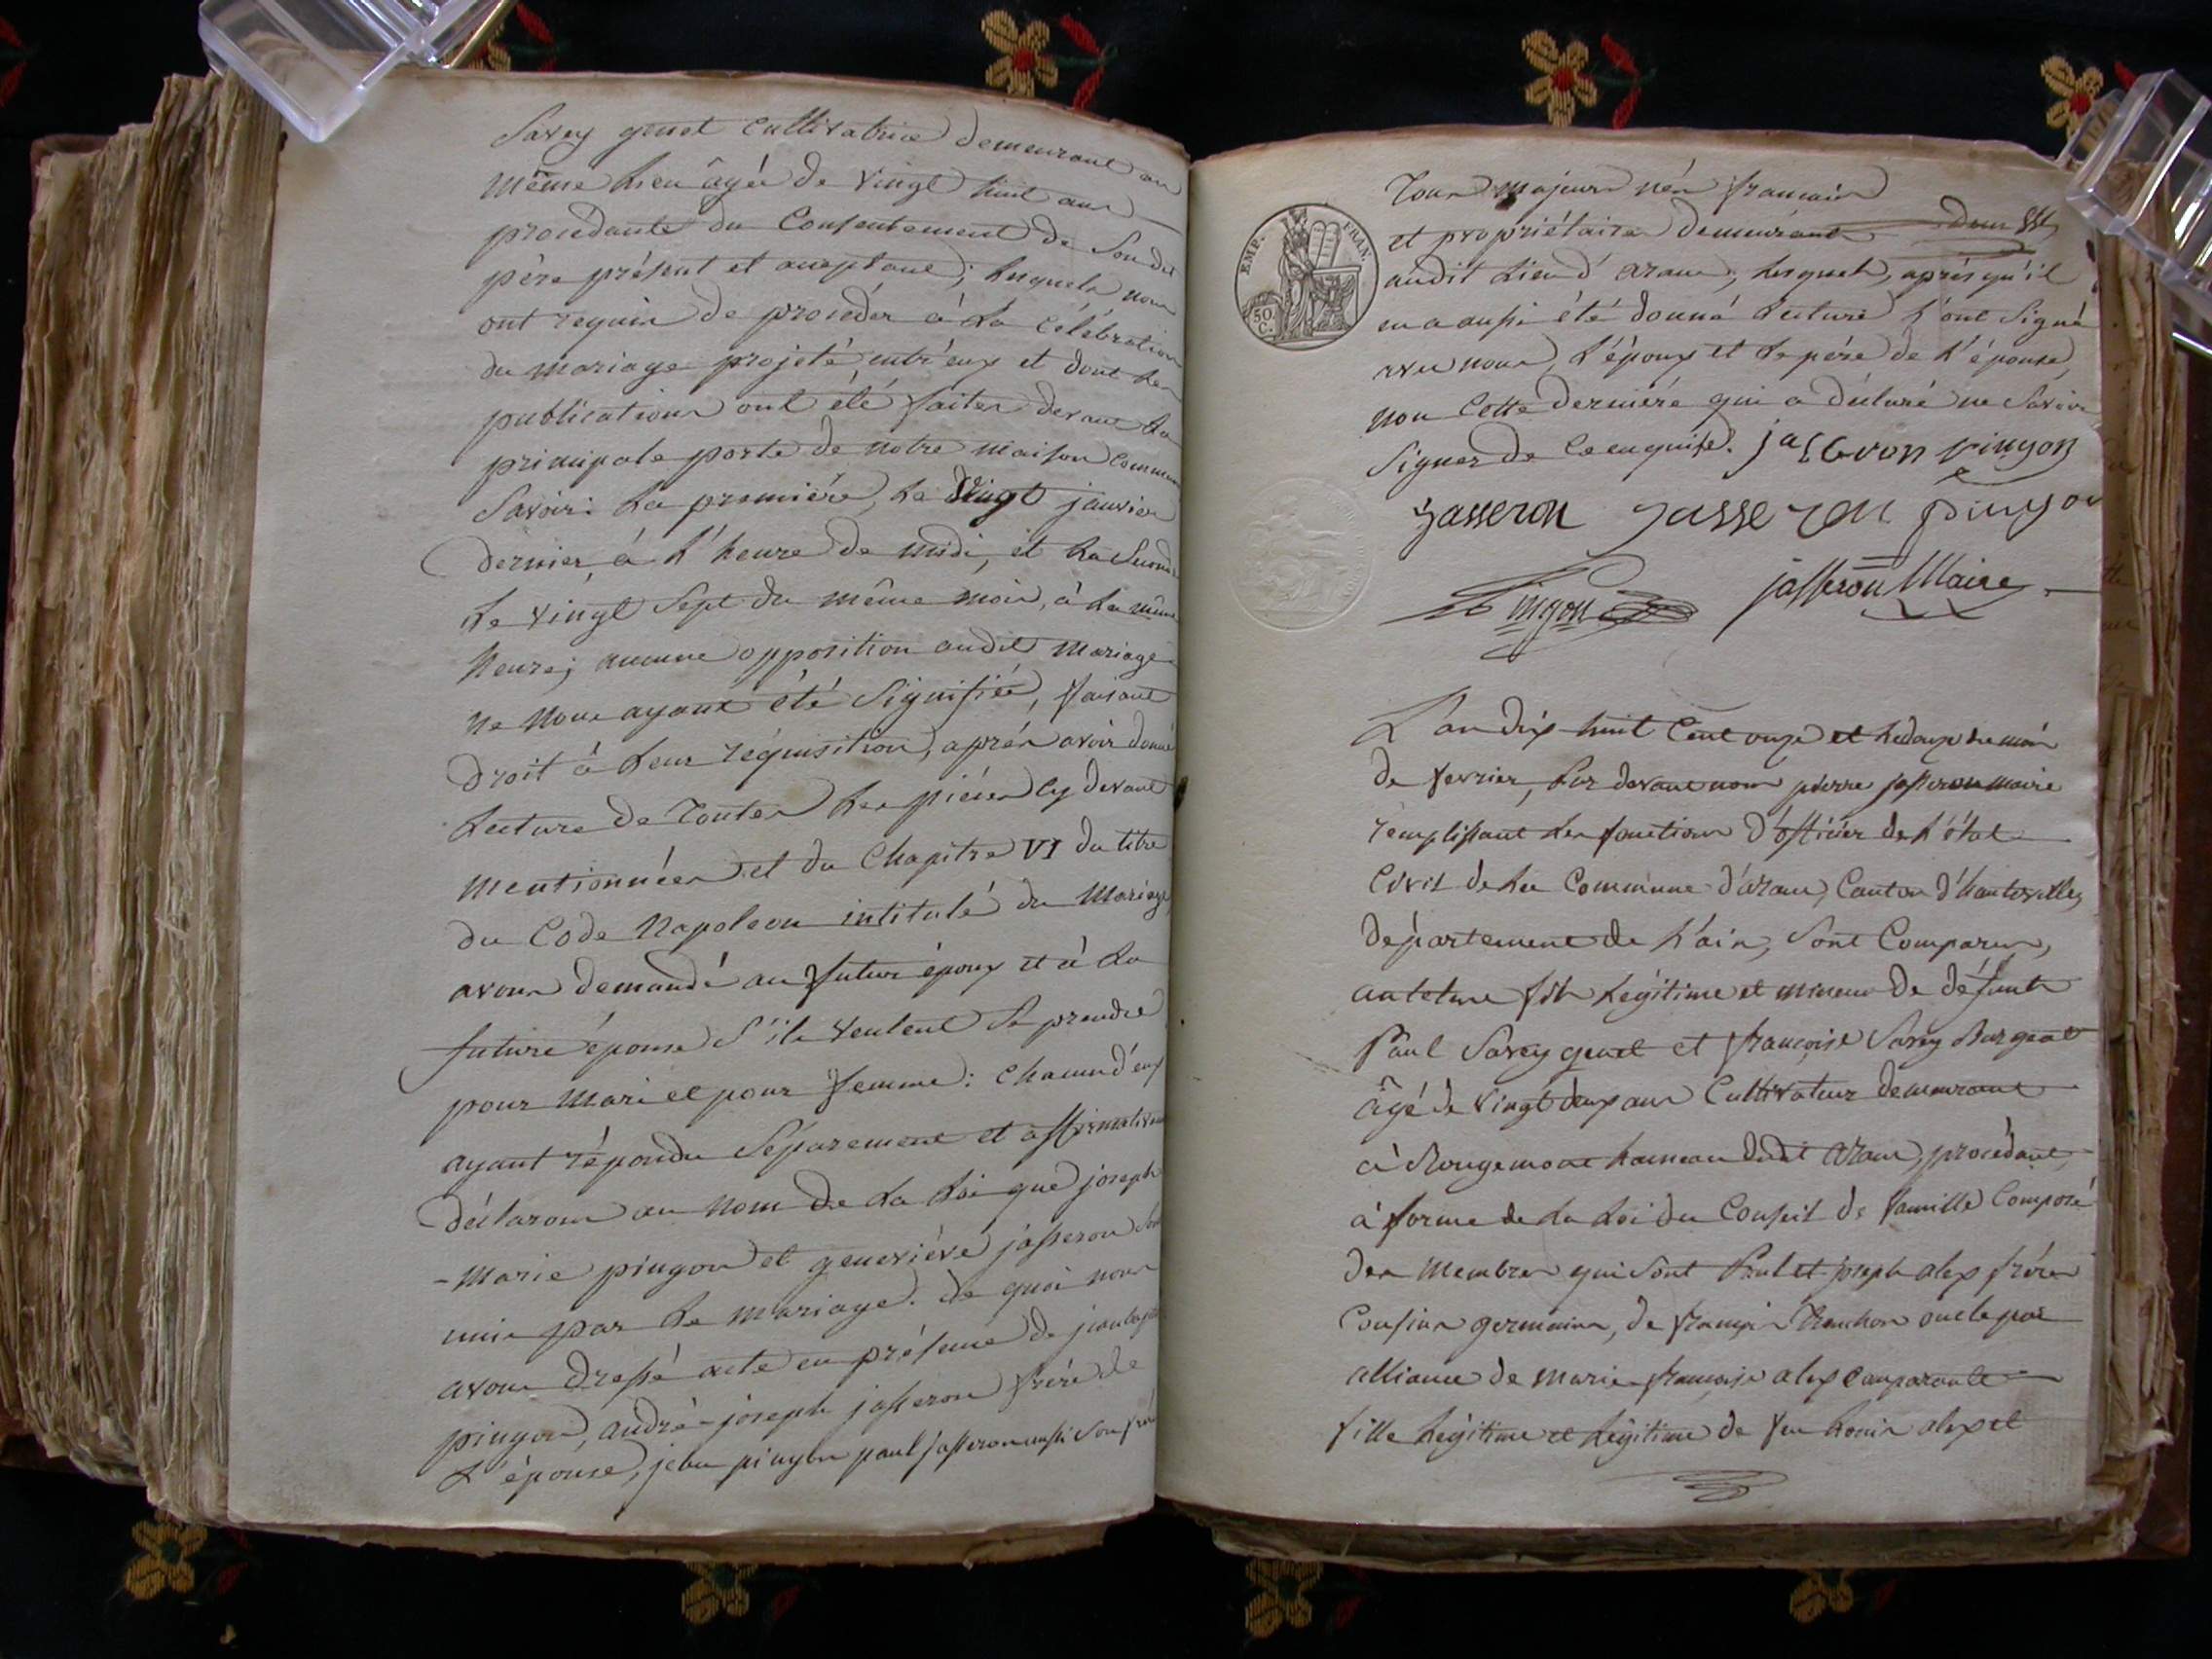 Savey genet cultivatrice demeurant au
même lieu âgée de vingt huit ans
procédante du Consentement de Son dit
père présent et aceptant; lesquels nous
ont requis de procéder à la Célébration
du mariage projeté entr'eux et dont les
publications ont été faites devant la
principale porte de notre maison commune
Savoir: la première, le vingt janvier
dernier, à l'heure de midi, et la Seconde
le vingt Sept du même mois, à la même
heure; aucune opposition audit mariage
ne nous ayant été Signifiée, faisant
droit à leur réquisition, après avoir donné
lecture de toutes les pièces cy devant
mentionnées et du Chapitre VI du titre
du Code Napoleon intitulé du Mariage,
avons demandé au futur époux et à la
future épouse s'ils veulent se prendre
pour Mari et pour femme: chacun d'eux
ayant répondu Séparement et affirmativem
déclarons au nom de la loi que joseph
-marie pingon et geneviève jasseron sont
unis par le mariage. de quoi nous
avons dressé acte en présence de
pingon, andré-joseph jasseron frère de
L'épouse, jean pingon paul jasseron aussi Son frère
EMP. FRAN.
50. C.
Tous majeurs nés francais
et propriétaires demeurant
audit lieu d'aranc, lesquels, après qu'il
en a aussi été donné lecture l'ont Signé
avec nous, l'époux et le père de l'épouse,
non cette dernière qui a déclaré ne Savoir
Signer de ce enquise. jasseron pingon
jasseron jasseron pingon
Pingon jasseron Maire
L'an dix huit cent onze et le douze du mois
de fevrier, par devant nous pierre jasseron maire
remplissant les fonctions d'officier de l'état
Civil de la Commune d'aranc, Canton d'hauteville,
département de l'ain, Sont Comparus,
antelme fils légitime et mineur de défunts
Paul Savey genet et francoise Savey
âgé de vingt deux ans Cultivateur demeurant
à Rougemont hameau dudit aranc, procédant,
à forme de la loi du Conseil de famille Composé
des Membres qui Sont Paul et joseph alex frères
Cousins germains, de françois oncle par
alliance de marie françoise alex comparante
fille légitime et légitime de feu Louis alex et